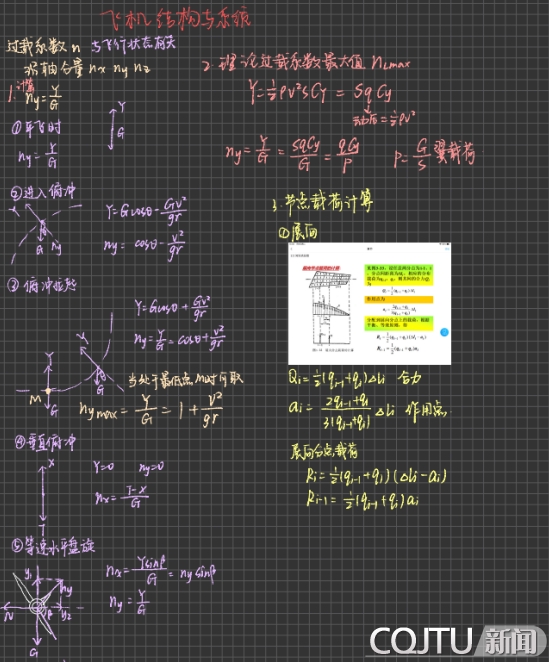 飞机结构与系统
过载系数n 与飞行状态有关
沿轴分量 nx ny nz
1. 计算 ny = Y/G
①平飞时
ny = Y/G
Y
G
②进入俯冲
Y = Gcosθ - Gv²/gr
ny = cosθ - v²/gr
③俯冲拉起
Y = Gcosθ + Gv²/gr
ny = Y/G = cosθ + v²/gr
当处于最低点M时可取
nymax = Y/G = 1 + v²/gr
M
G
④垂直俯冲
Y=0 ny=0
nx = T-X/G
⑤等速水平盘旋
nx = Ysinβ/G = ny sinβ
ny = Y/G
2. 理论过载系数最大值 nLmax
Y = ½ρv²SCy = SqCy
动压 = ½ρv²
ny = Y/G = SqCy/G = qCy/P P = G/S 翼载荷
3. 节点载荷计算
①展向
Qi = ½(qi-1+qi)ΔLi 合力
ai = 2qi-1+qi/3(qi-1+qi) ΔLi 作用点
展向分点载荷
Ri = ½(qi-1+qi)(ΔLi-ai)
Ri-1 = ½(qi-1+qi)ai
CQJTU 新闻